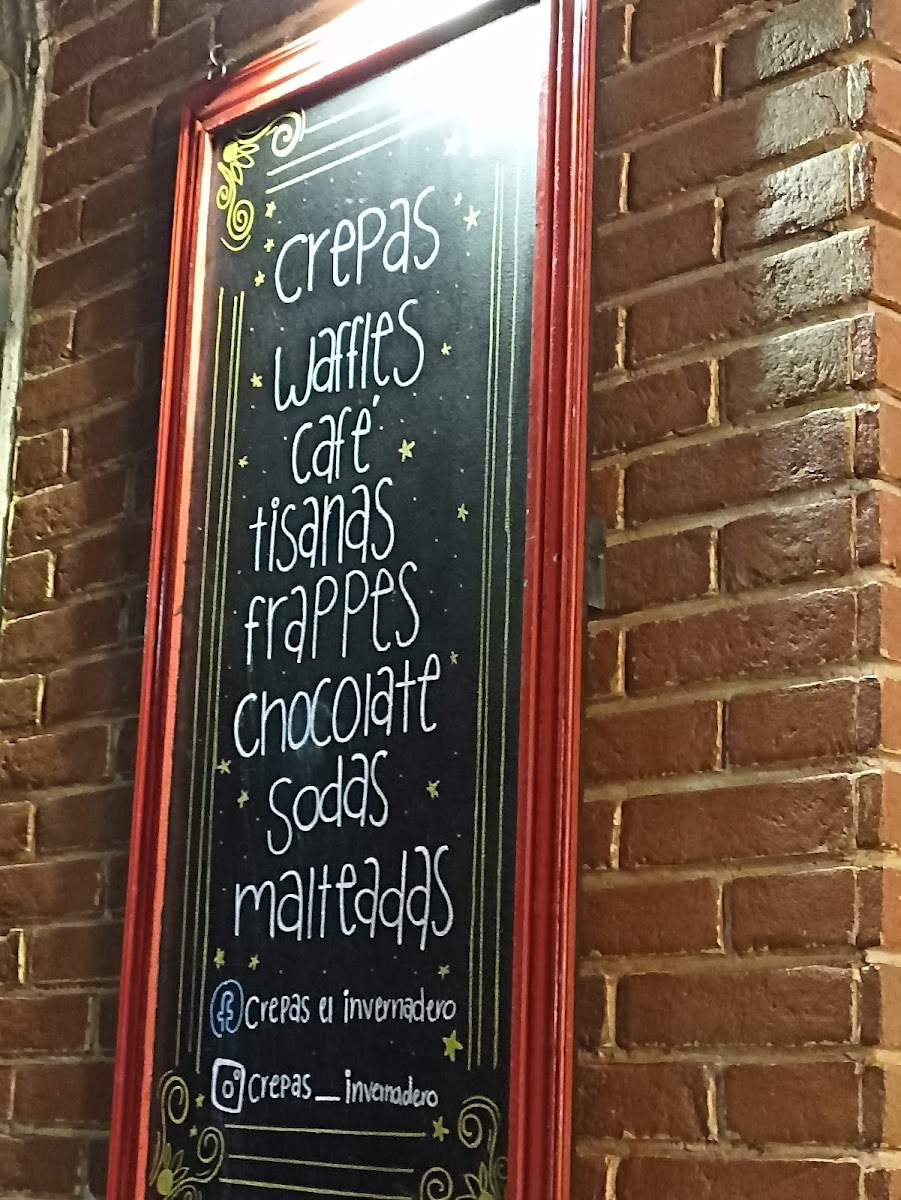 crepas
waffles
café
tisanas
frappes
chocolate
sodas
malteadas
crepas el invernadero
crepas_invernadero